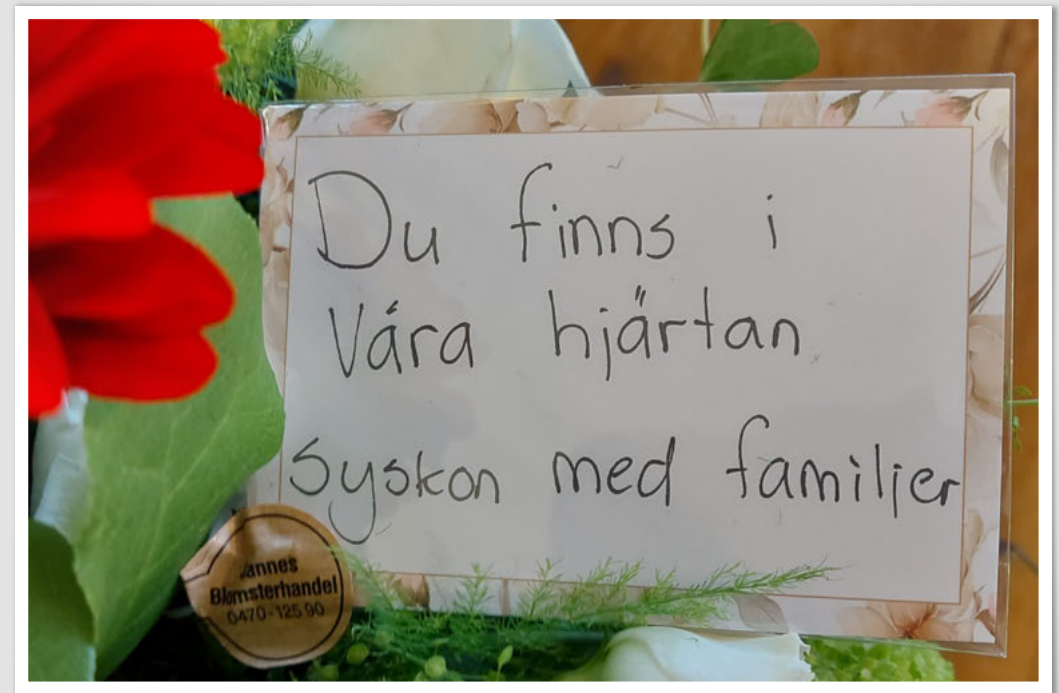 Du finns i
Våra hjärtan
Syskon med familjer
Jannes
Blomsterhandel
0470-125 90